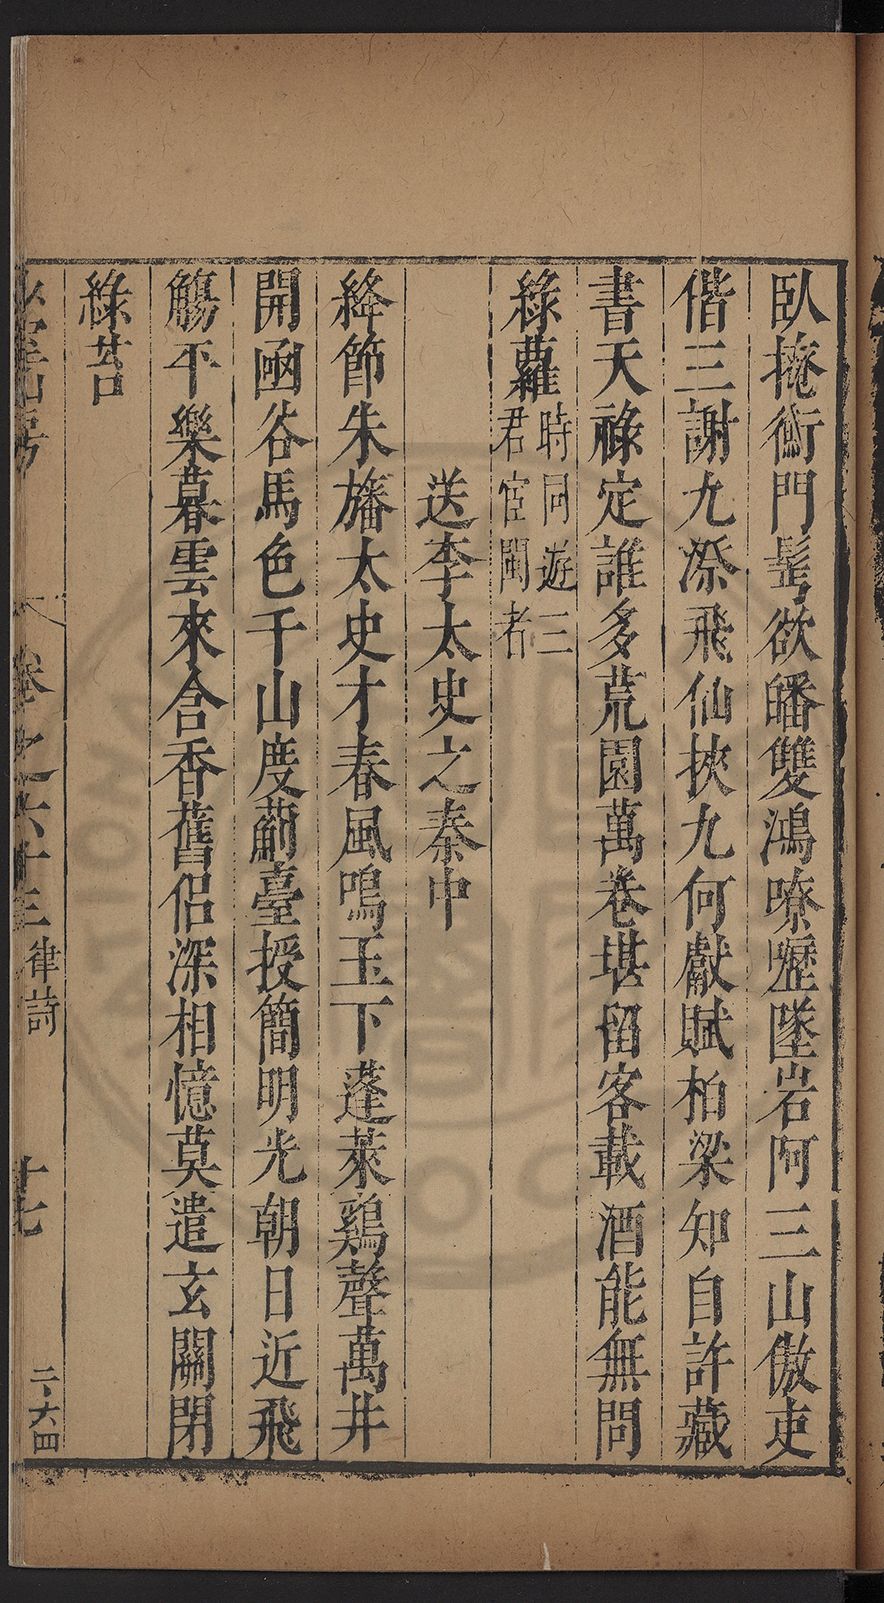 臥掩衡門髩欲皤雙鴻嘹嚦墜岩阿三山傲吏
偕三謝九漈飛仙挾九何獻賦柏梁知自許藏
書天祿定誰多荒園萬卷堪留客載酒能無問
綠蘿時同遊三君宦閩者
送李太史之秦中
絳節朱旛太史才春風鳴玉下蓬萊鷄聲萬井
開凾谷馬色千山度薊臺授簡明光朝日近飛
觴平樂暮雲來含香舊侶深相憶莫遣玄關閉
綠苔
山房
卷之六十三 律詩 十七
二、六四